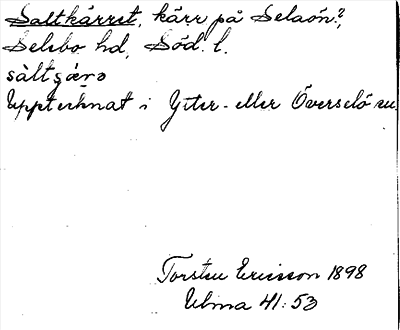 Saltkärret, kärr på Selaön?,
Selebo hd, Söd. l.
Upptecknat i Ytter- eller Överselö sn.
Torsten Ericsson 1898
Ulma 41:53